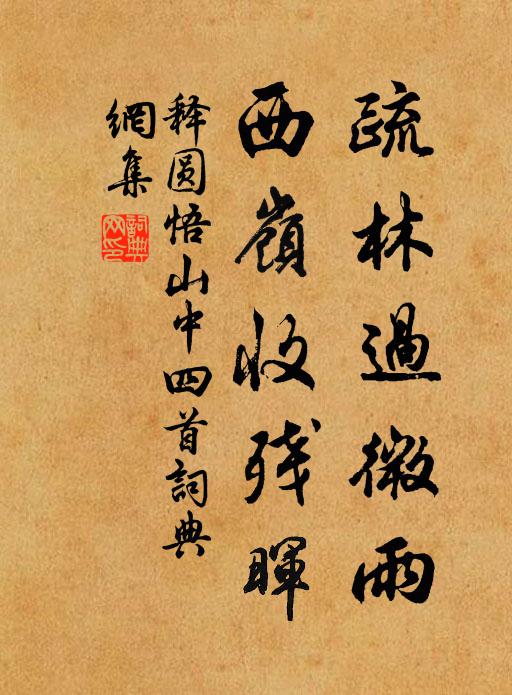 疏林過微雨
西嶺收残暉
释圆悟山中四首詞典
網集
詞典網印